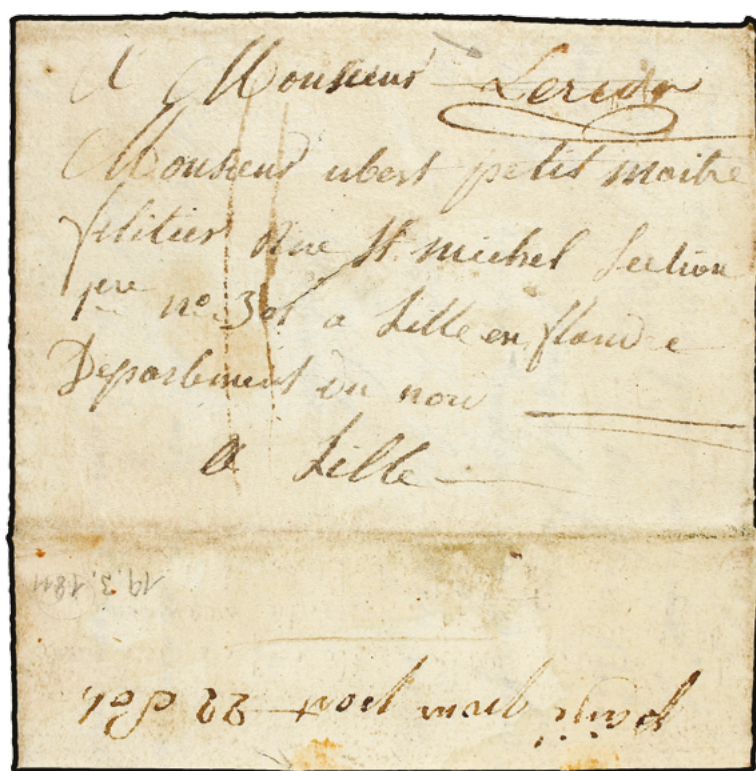 A Monsieur Leredr
Monsieur ubert petit maitre
filitier Rue St michel Section
1ere no 301 a Lille en flandre
Departement du nord
a Lille
19.3.1811
pour port 22